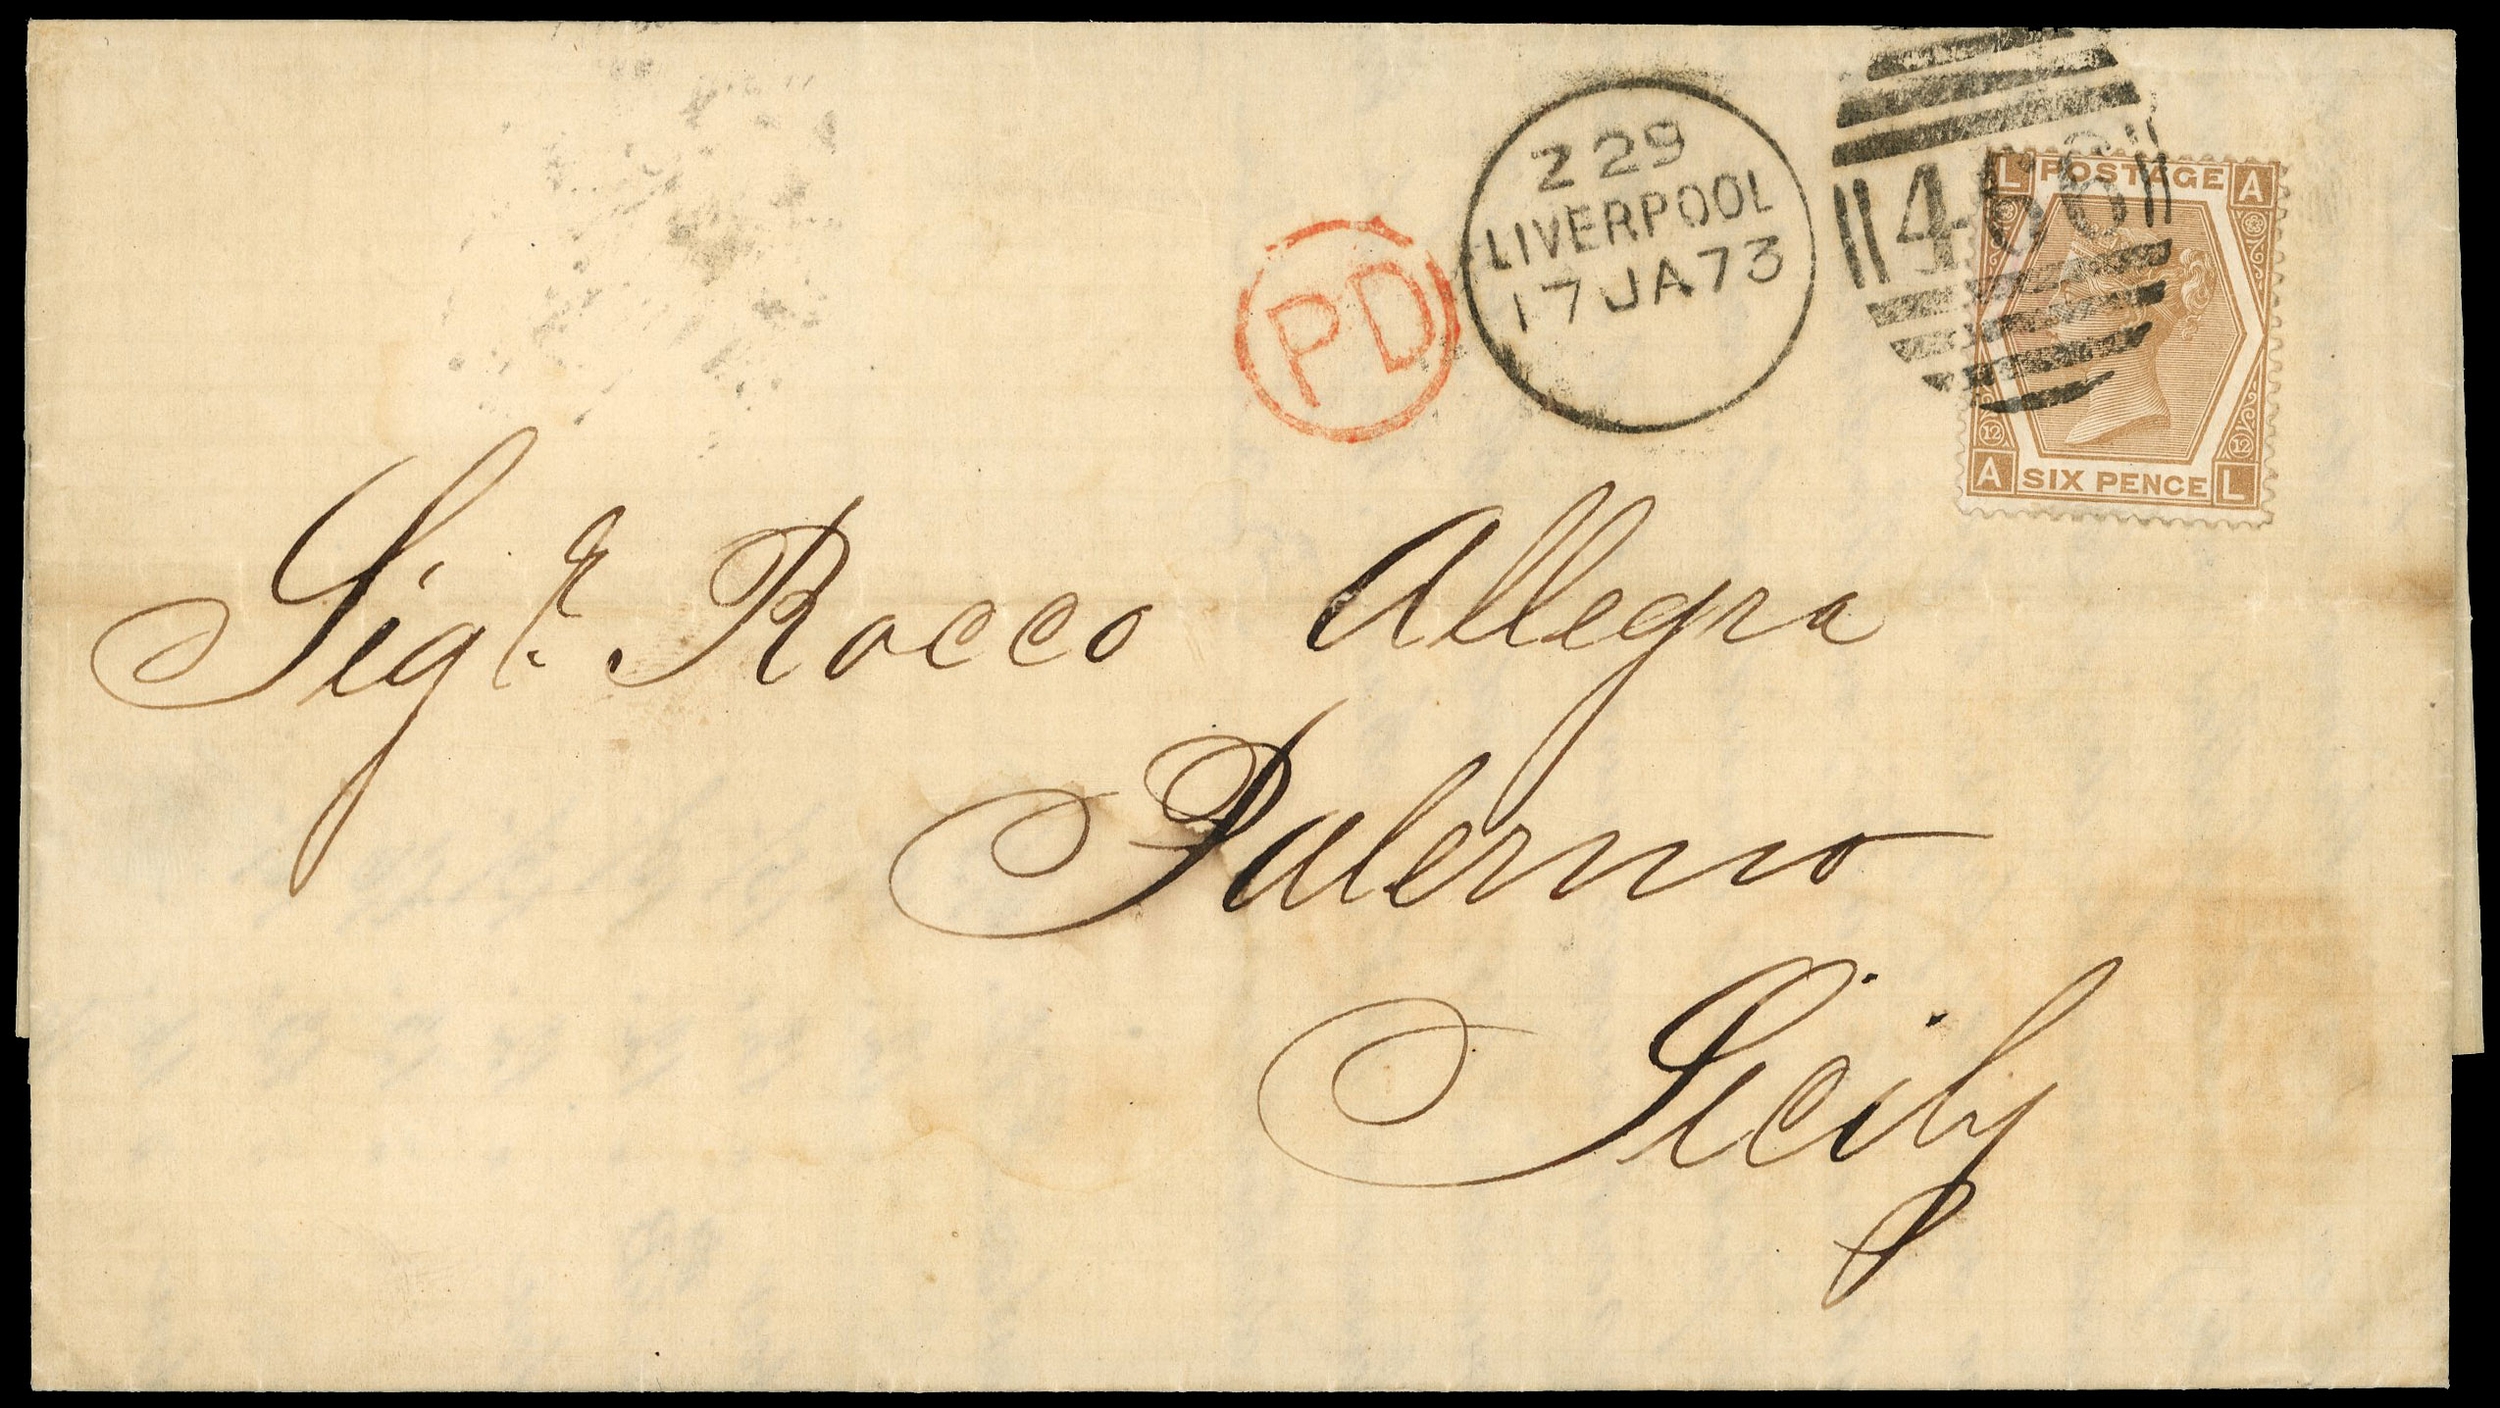 Z 29
LIVERPOOL
17 JA 73
466
PD
L POSTAGE A
12 12
A SIX PENCE L
Sigr. Rocco Allegra
Palermo
Sicily